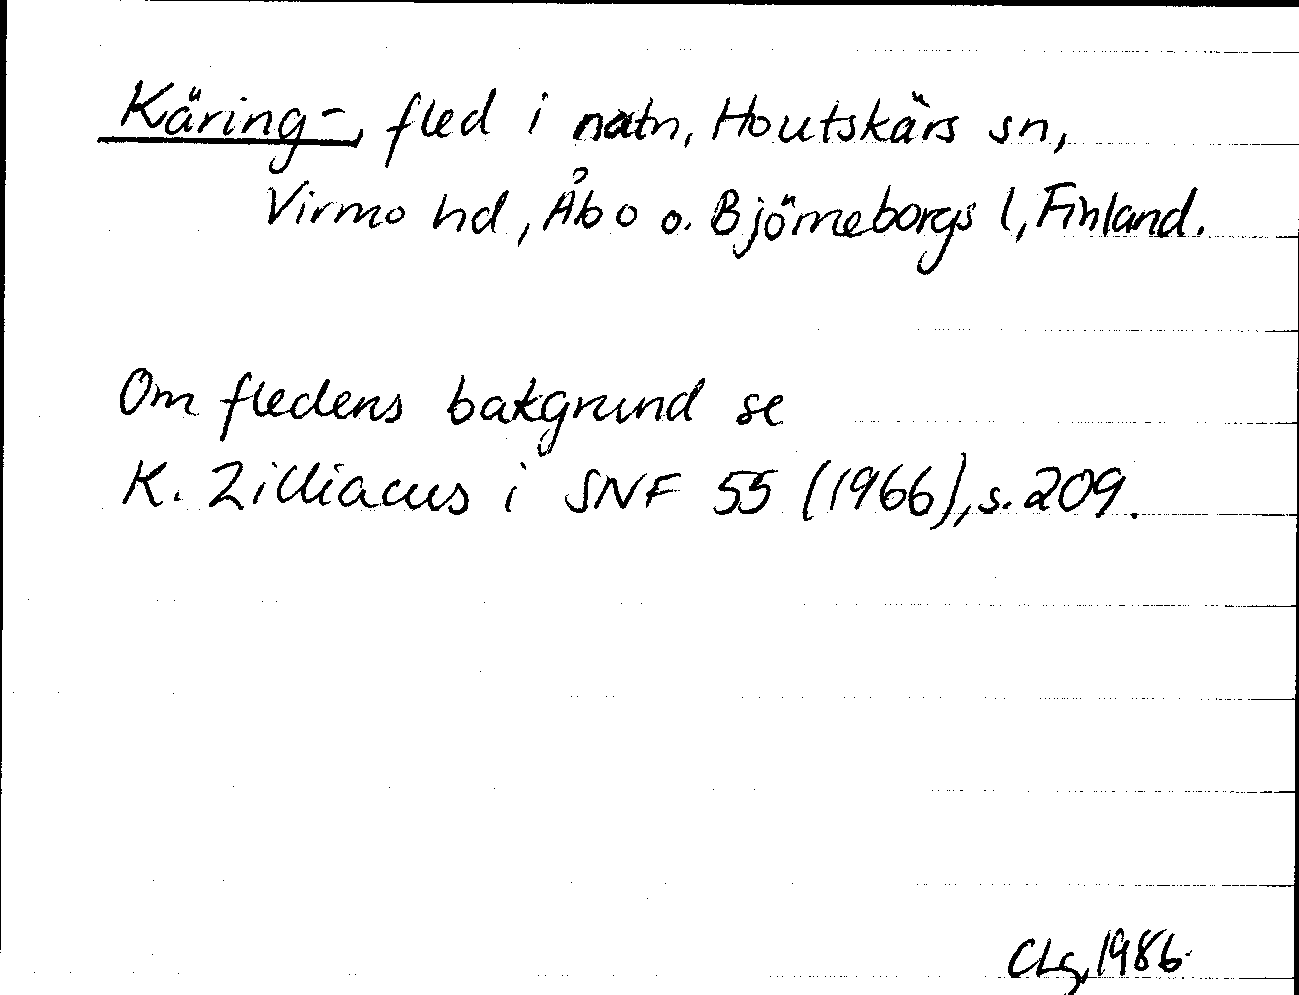 Käring-, fled i natn, Houtskärs sn,
Virmo hd, Åbo o. Björneborgs l, Finland.
Om fledens bakgrund se
K. Zilliacus i SNF 55 (1966), s. 209.
CLg, 1986